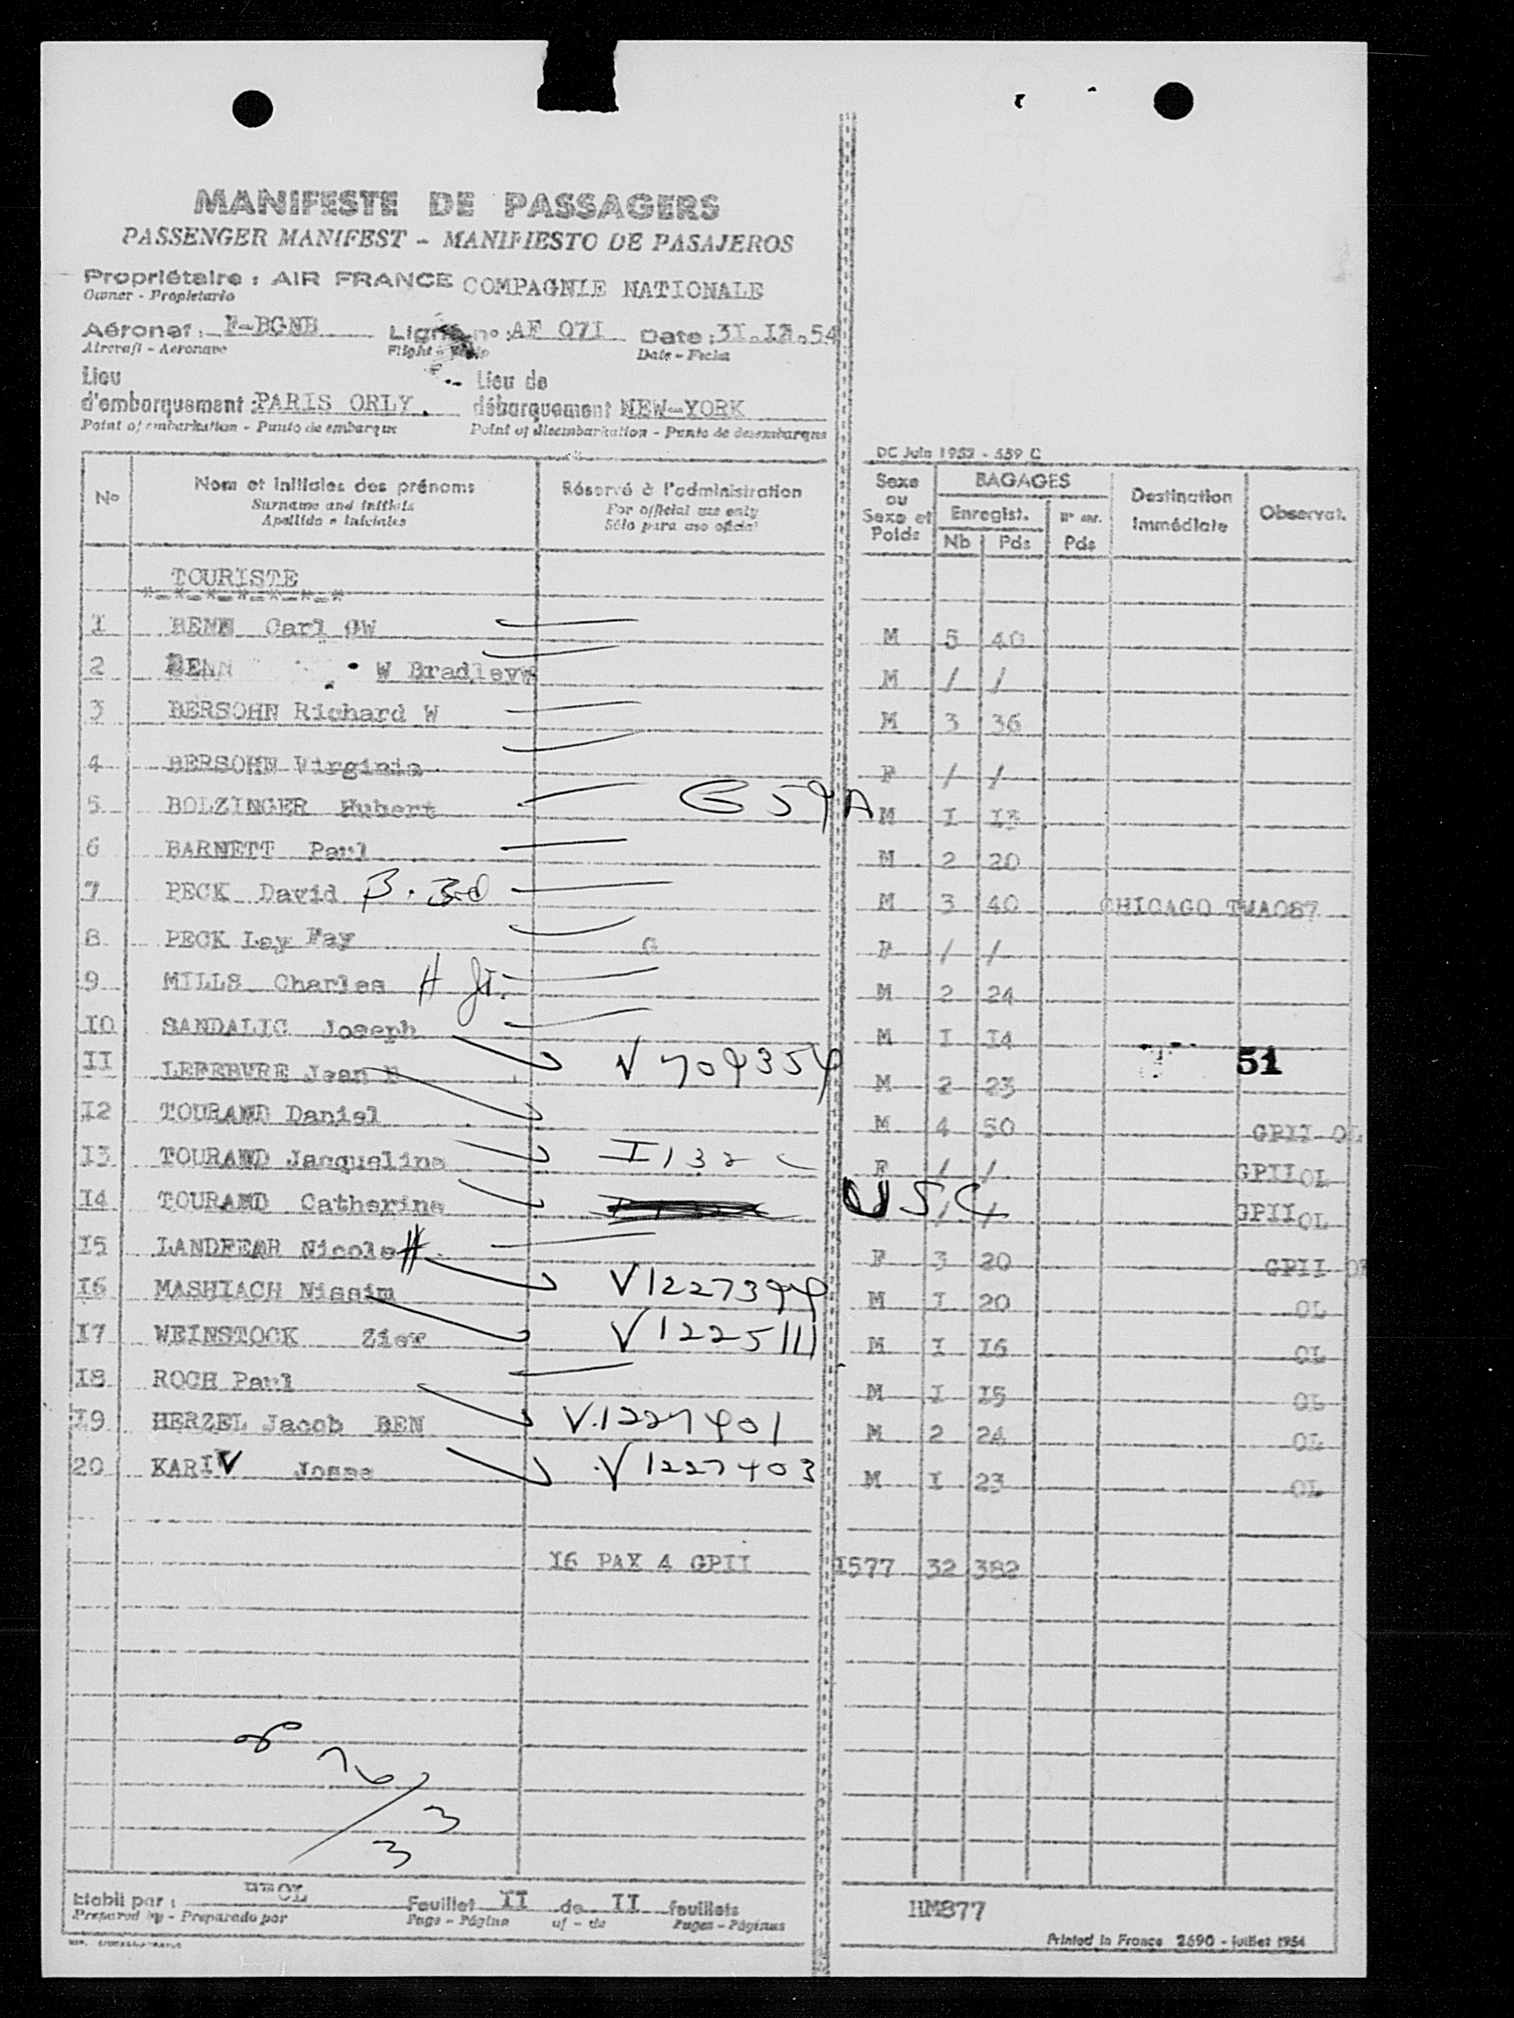 MANIFESTE DE PASSAGERS
PASSENGER MANIFEST - MANIFIESTO DE PASAJEROS
Propriétaire : AIR FRANCE COMPAGNIE NATIONALE
Owner - Propietario
Aéronef : F-BGNB Ligne no : AF 071 Date : 31.12.54
Aircraft - Aeronave Flight Date - Fecha
Lieu d'embarquement : PARIS ORLY. Lieu de débarquement NEW-YORK
Point of embarkation - Punto de embarque Point of disembarkation - Punto de desembarque
DC Juin 1952 - 559 C
No Nom et initiales des prénoms Réservé à l'administration Sexe ou Sexe et Poids BAGAGES Destination immédiate Observat.
Surname and initials For official use only Enregist.
Apellido e iniciales Sólo para uso oficial Nb Pds Pds
TOURISTE
*-*-*-*-*-*-*-*
1 BENN Carl GW M 5 40
2 BENN W Bradley M / /
3 BERSOHN Richard W M 3 36
4 BERSOHN Virginia F / /
5 BOLZINGER Hubert G 59A M I I3
6 BARNETT Paul M 2 20
7 PECK David B. 3d M 3 40 CHICAGO TWA087
8 PECK Lay Fay G F / /
9 MILLS Charles H Jr. M 2 24
IO SANDALIC Joseph M I I4
II LEFEBURE Jean V 709354 M 2 23 51
I2 TOURAND Daniel M 4 50 GPII OL
I3 TOURAND Jacqueline I 132 F / / GPII OL
I4 TOURAND Catherine USC / / GPII OL
I5 LANDFEAR Nicole H. F 3 20 GPII
I6 MASHIACH Nissim V1227399 M I 20 OL
I7 WEINSTOCK V1225111 M I I6 OL
I8 ROCH Paul M I I5 OL
I9 HERZEL Jacob BEN V.1227401 M 2 24 OL
20 KARIV Josse V 1227403 M I 23 OL
I6 PAX 4 GPII I577 32 382
3
3
Etabli par : Feuillet II de II feuillets HM877
Prepared by - Preparado por Page - Página of - de Pages - Páginas
Printed in France 2690 - juillet 1954